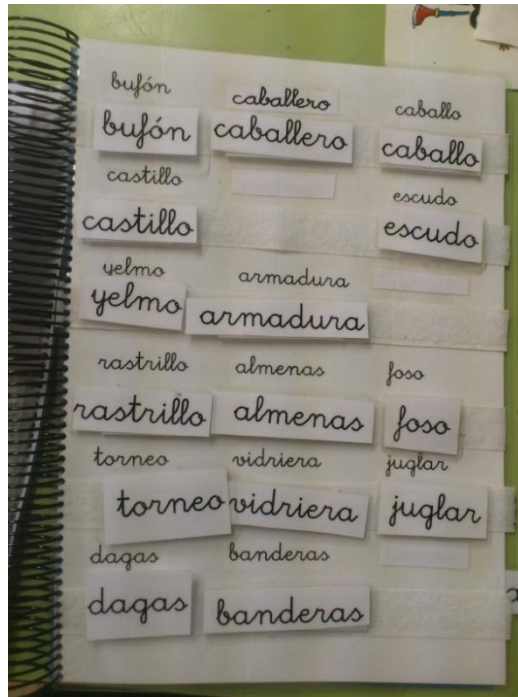 bufón caballero caballo
bufón caballero caballo
castillo escudo
castillo escudo
yelmo armadura
yelmo armadura
rastrillo almenas foso
rastrillo almenas foso
torneo vidriera juglar
torneo vidriera juglar
dagas banderas
dagas banderas